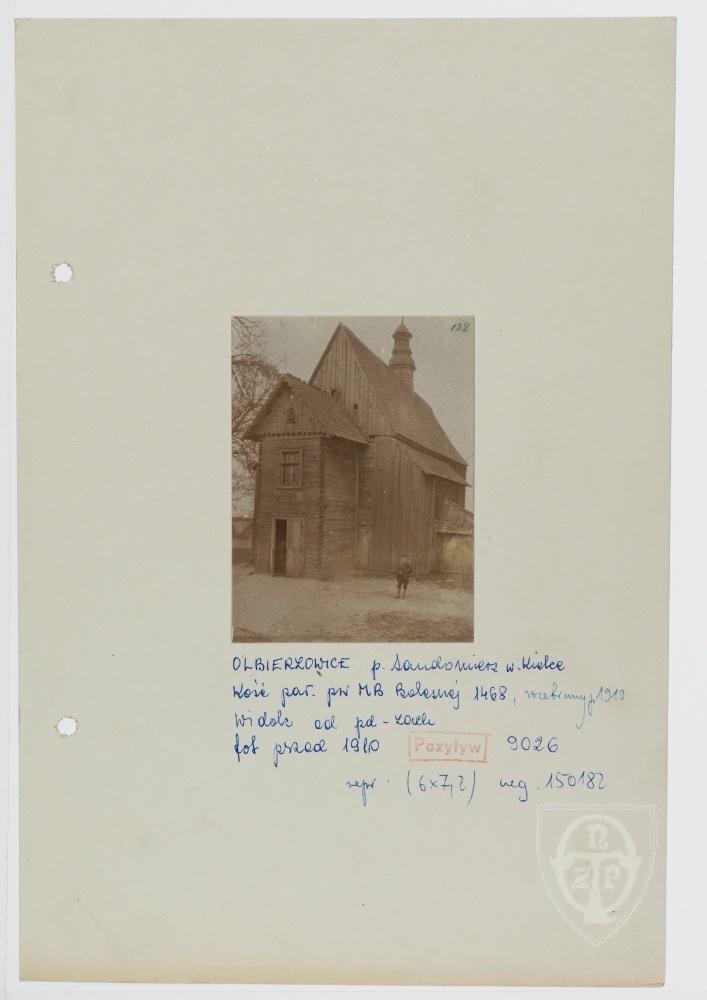 128
OLBIERZOWICE p. Sandomierz w. Kielce
Kość par. pw MB Bolesnej 1468, rozebrany p. 1910
Widok od pd-zach
fot przed 1910 Pozytyw 9026
repr. (6x7,2) neg. 150182
nZP